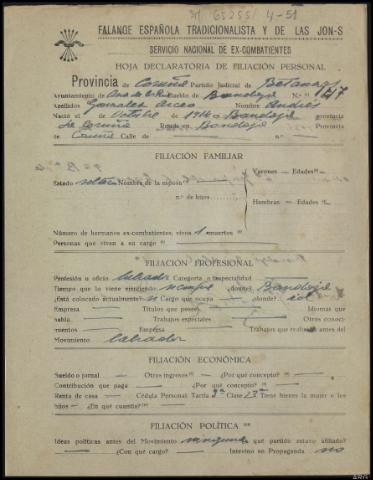 65255 4-51
FALANGE ESPAÑOLA TRADICIONALISTA Y DE LAS JON-S
SERVICIO NACIONAL DE EX-COMBATIENTES
HOJA DECLARATORIA DE FILIACIÓN PERSONAL
Provincia de Coruña Partido Judicial de Betanzos
Ayuntamiento de Pueblo de Bandoja N.º
Apellidos Gonzalez Arceo Nombre Andrés
Nació el de Octubre de 1916 a Bandoja provincia
de Coruña Reside en Bandoja Provincia
Coruña Calle de
FILIACIÓN FAMILIAR
Varones - Edades
Estado soltero Nombre de la esposa
n.º de hijos
Hembras - Edades
Número de hermanos ex-combatientes, vivos 1 muertos
Personas que vivan a su cargo
FILIACIÓN PROFESIONAL
Profesión u oficio labrador Categoría o especialidad
Tiempo que la viene ejerciendo siempre ¿donde? Bandoja
¿Está colocado actualmente? si Cargo que ocupa ¿donde? id
Empresa Títulos que posee Idiomas que
habla Trabajos especiales Otros conoci-
mientos Empresa Trabajos que realizaba antes del
Movimiento labrador
FILIACIÓN ECONÓMICA
Sueldo o jornal Otros ingresos ¿Por qué concepto?
Contribución que paga ¿Por qué concepto?
Renta de casa Cédula Personal Tarifa 2ª Clase 13ª Tiene bienes la mujer o los
hijos ¿En qué cuantía?
FILIACIÓN POLÍTICA
Ideas políticas antes del Movimiento ninguna qué partido estuvo afiliado?
¿Con qué cargo? Intervino en Propaganda no